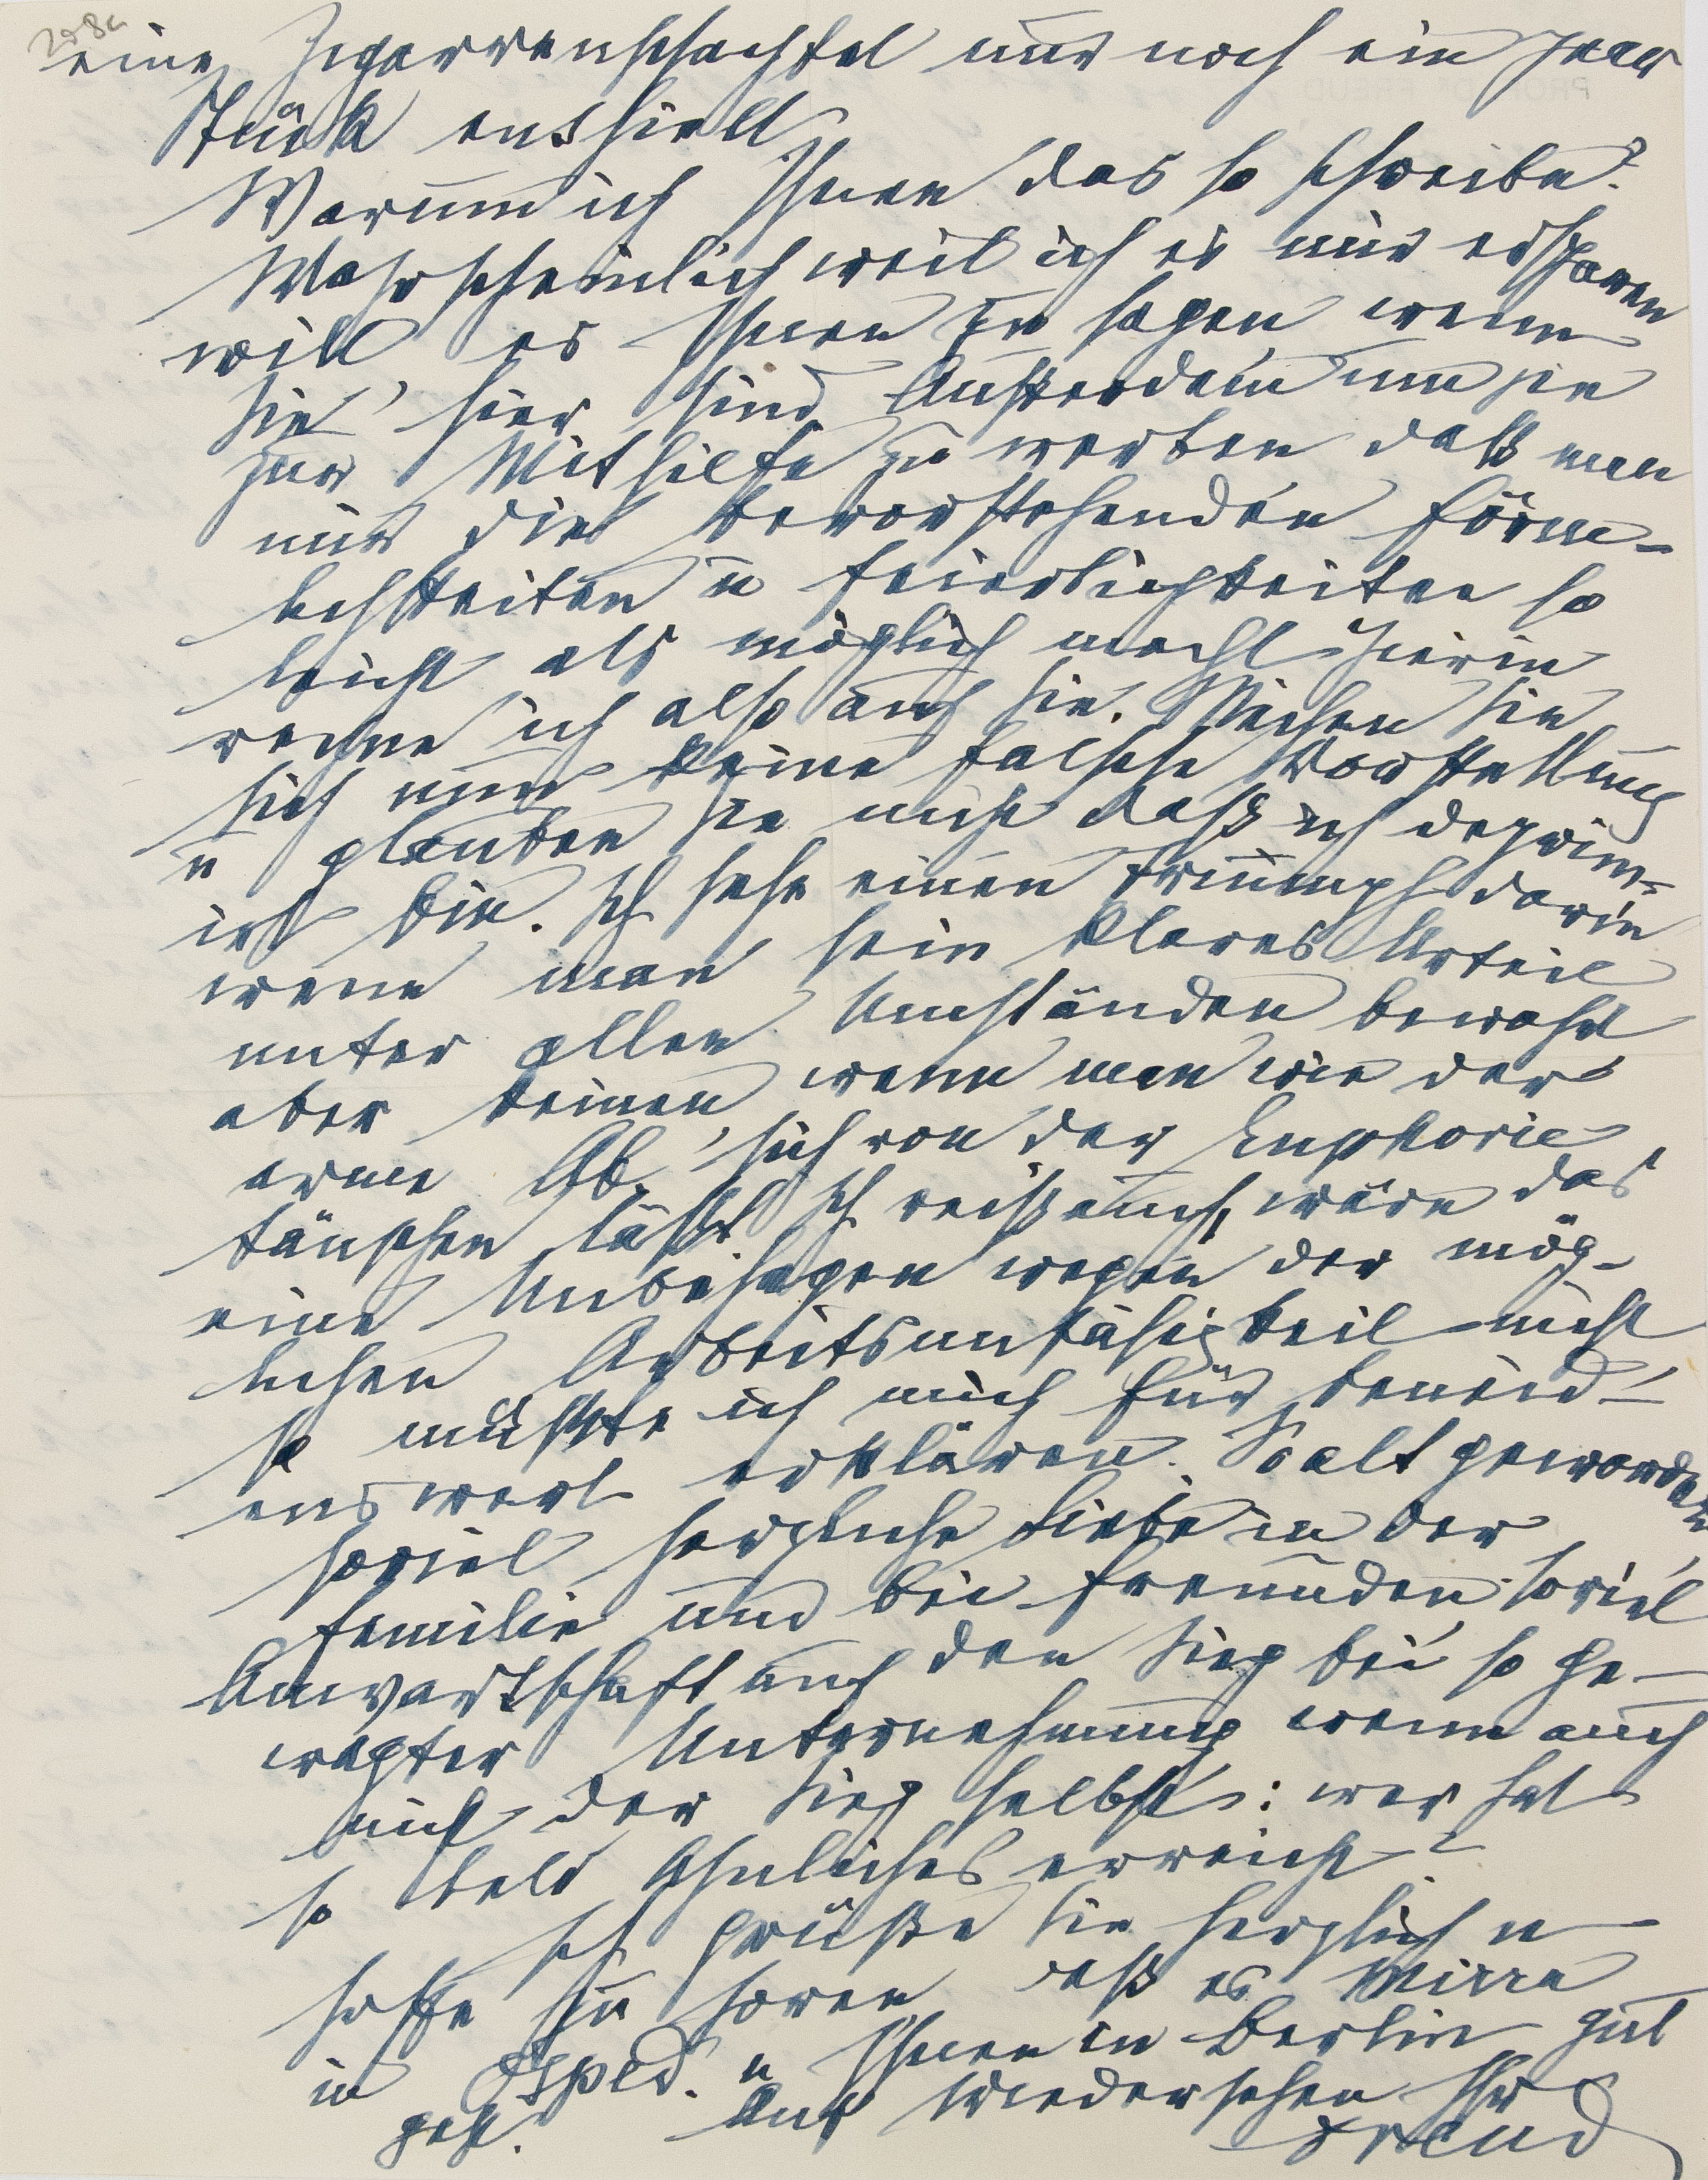 eine Zigarrenschachtel nur noch ein paar
Stück enthielt
Warum ich Ihnen das so schreibe?
Wahrscheinlich weil ich es mir ersparen
will es Ihnen zu sagen wenn
Sie hier sind. Außerdem um Sie
zur Mithilfe zu werben daß man
mir die bevorstehenden Förm-
lichkeiten u Feierlichkeiten so
leicht als möglich macht Hierin
rechne ich also auf Sie. Machen Sie
sich nur keine falsche Vorstellung
u glauben Sie nicht daß ich deprim-
irt bin. Ich sehe einen Triumph darin
wenn man sein klares Urteil
unter allen Umständen bewahrt
aber keinen wenn man wie der
arme Ab. sich von der Euphorie
täuschen läßt. Ich weiß auch, wäre das
eine Unbehagen wegen der mög-
lichen Arbeitsunfähigkeit nicht
so müßte ich mich für beneid-
enswert erklären. So alt geworden
soviel herzliche Liebe in der
Familie und bei Freunden soviel
Anwartschaft auf den Sieg bei so ge-
wagter Unternehmung wenn auch
nicht der Sieg selbst: wer hat
so bald Ähnliches erreicht?
Ich grüße Sie herzlich u
hoffe zu hören daß es Mirra
in Ospед. u Ihnen in Berlin gut
geht. Auf Wiedersehen Ihr
Freud